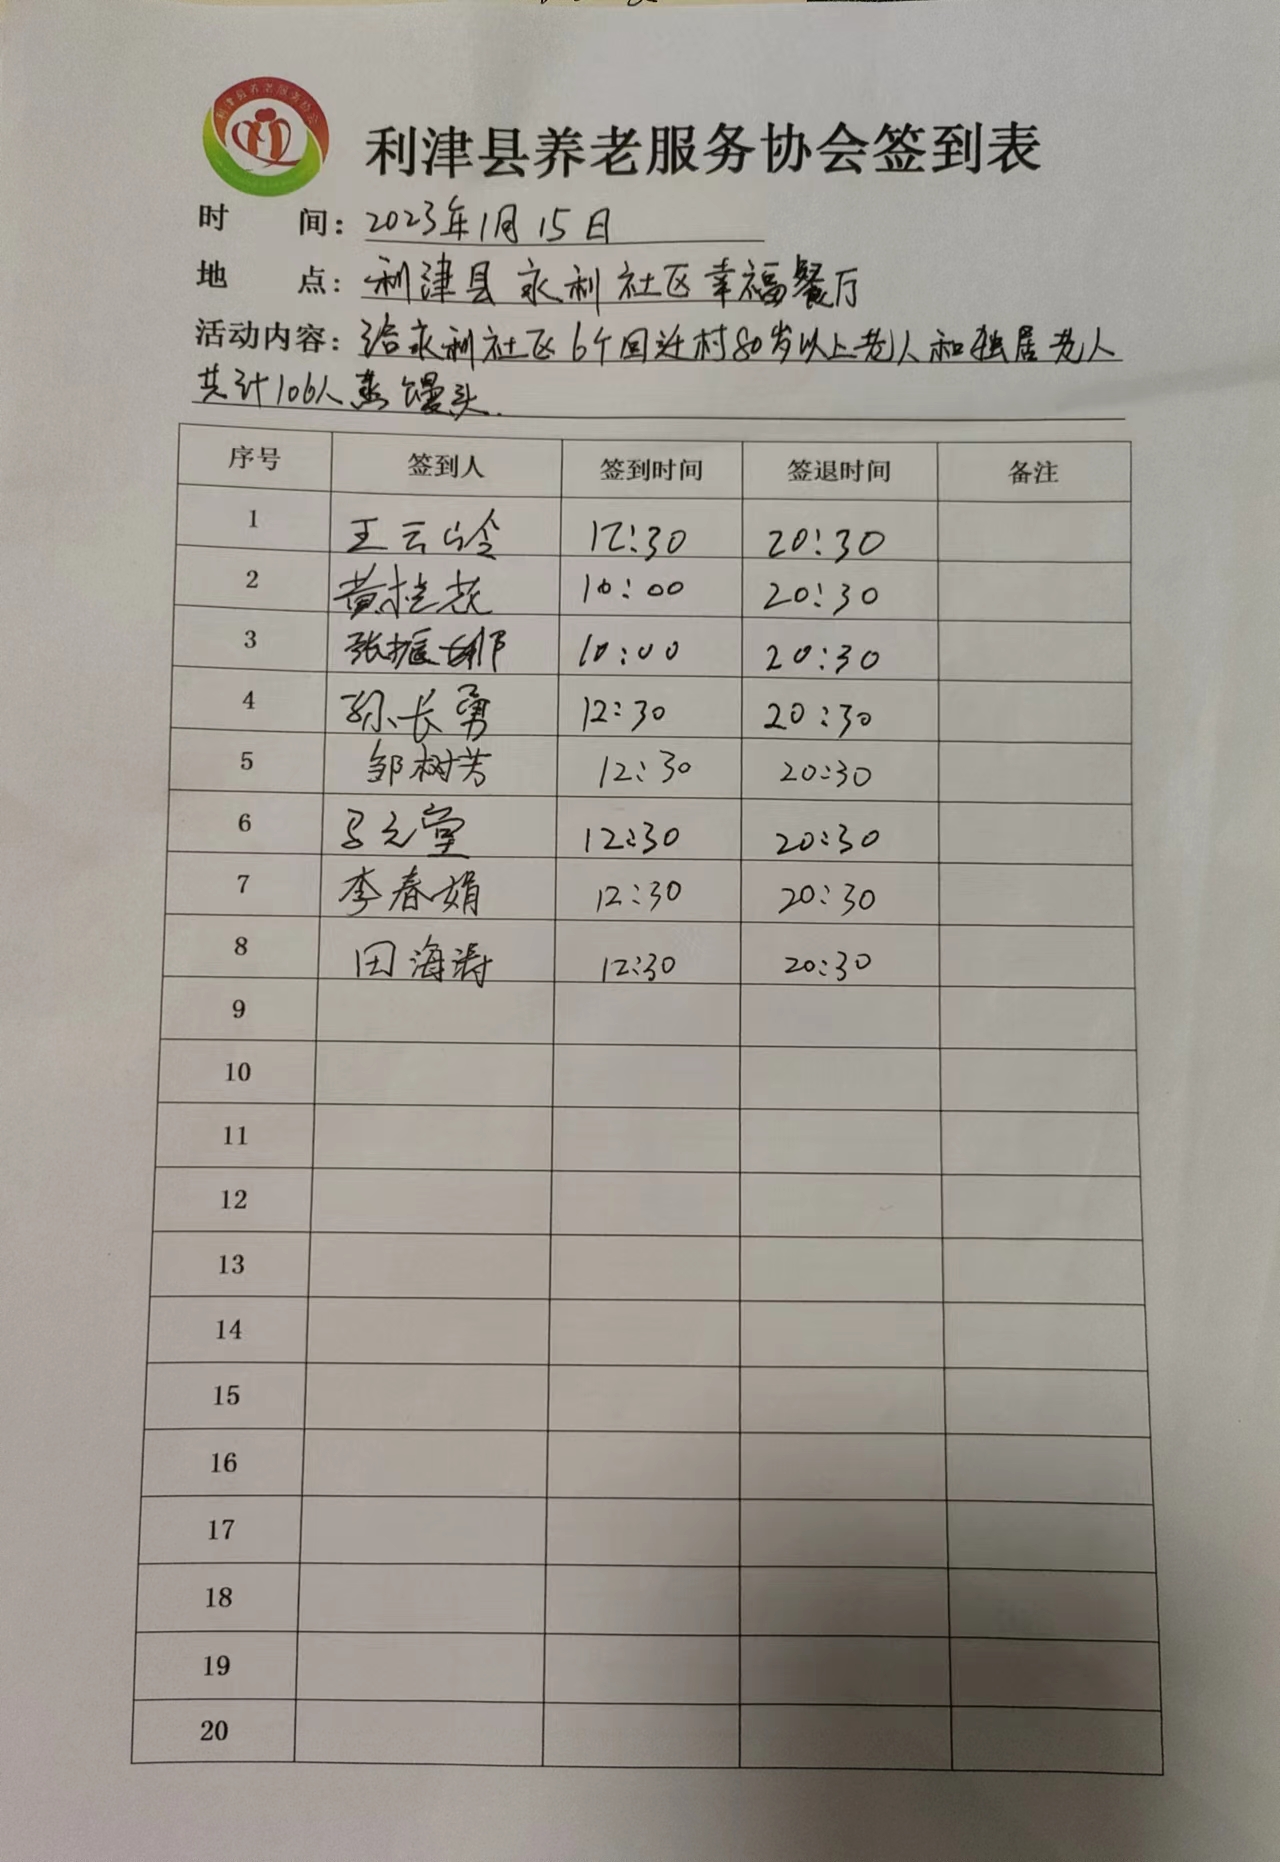 利津县养老服务协会
利津县养老服务协会签到表
时 间: 2023年1月15日
地 点: 利津县永利社区幸福餐厅
活动内容: 给永利社区6个回迁村80岁以上老人和独居老人
共计106人蒸馒头.
序号 签到人 签到时间 签退时间 备注
1 王云岭 12:30 20:30
2 黄桂花 10:00 20:30
3 张振娜 10:00 20:30
4 孙长勇 12:30 20:30
5 邹树芳 12:30 20:30
6 元堂 12:30 20:30
7 李春娟 12:30 20:30
8 田海涛 12:30 20:30
9
10
11
12
13
14
15
16
17
18
19
20